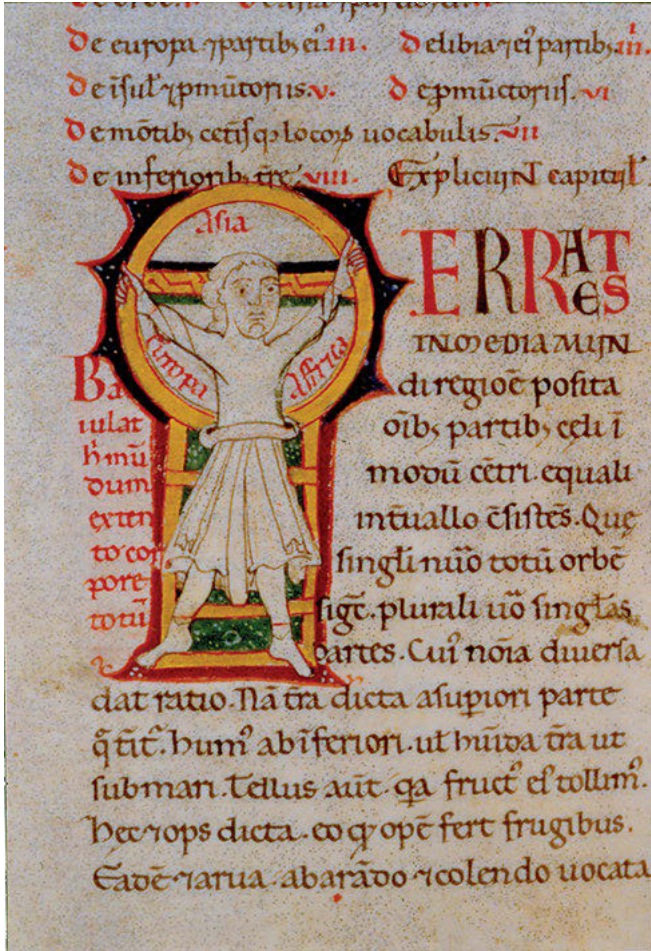 De europa ⁊ partib; ei'. iii. De libia ⁊ ei' partib; iiii.
De īsul' ⁊ pmūtoriis. v. De pmūctoriis. vi
De mōtib; cetīsq; locoꝝ uocabulis. vii
De inferiorib; tr̄e. viii. Expliciunt capitul'.
Asia
Europa
Affrica
TERRA EST
IN MEDIA MUN
di regiōe posita
oīb; partib; cęli ī
modū cētri equali
intuallo c̄sistēs. Quę
singl'i nūo totū orbē
sigt̄. plurali ūo singl'as
partes. Cui' noīa diuersa
dat ratio. Nā tr̄a dicta a supiori parte
q̄ tīt'. hum' ab īferiori. ut hūida tr̄a ut
sub mari. Tellus aūt. qa fruct' ei' tollim'.
hec ⁊ ops dicta. eo q̄ opē fert frugibus.
Eadē ⁊ arua. ab arādo ⁊ colendo uocata
Ba
iulat
h' mū
dum
exten
to cor
pore
totū